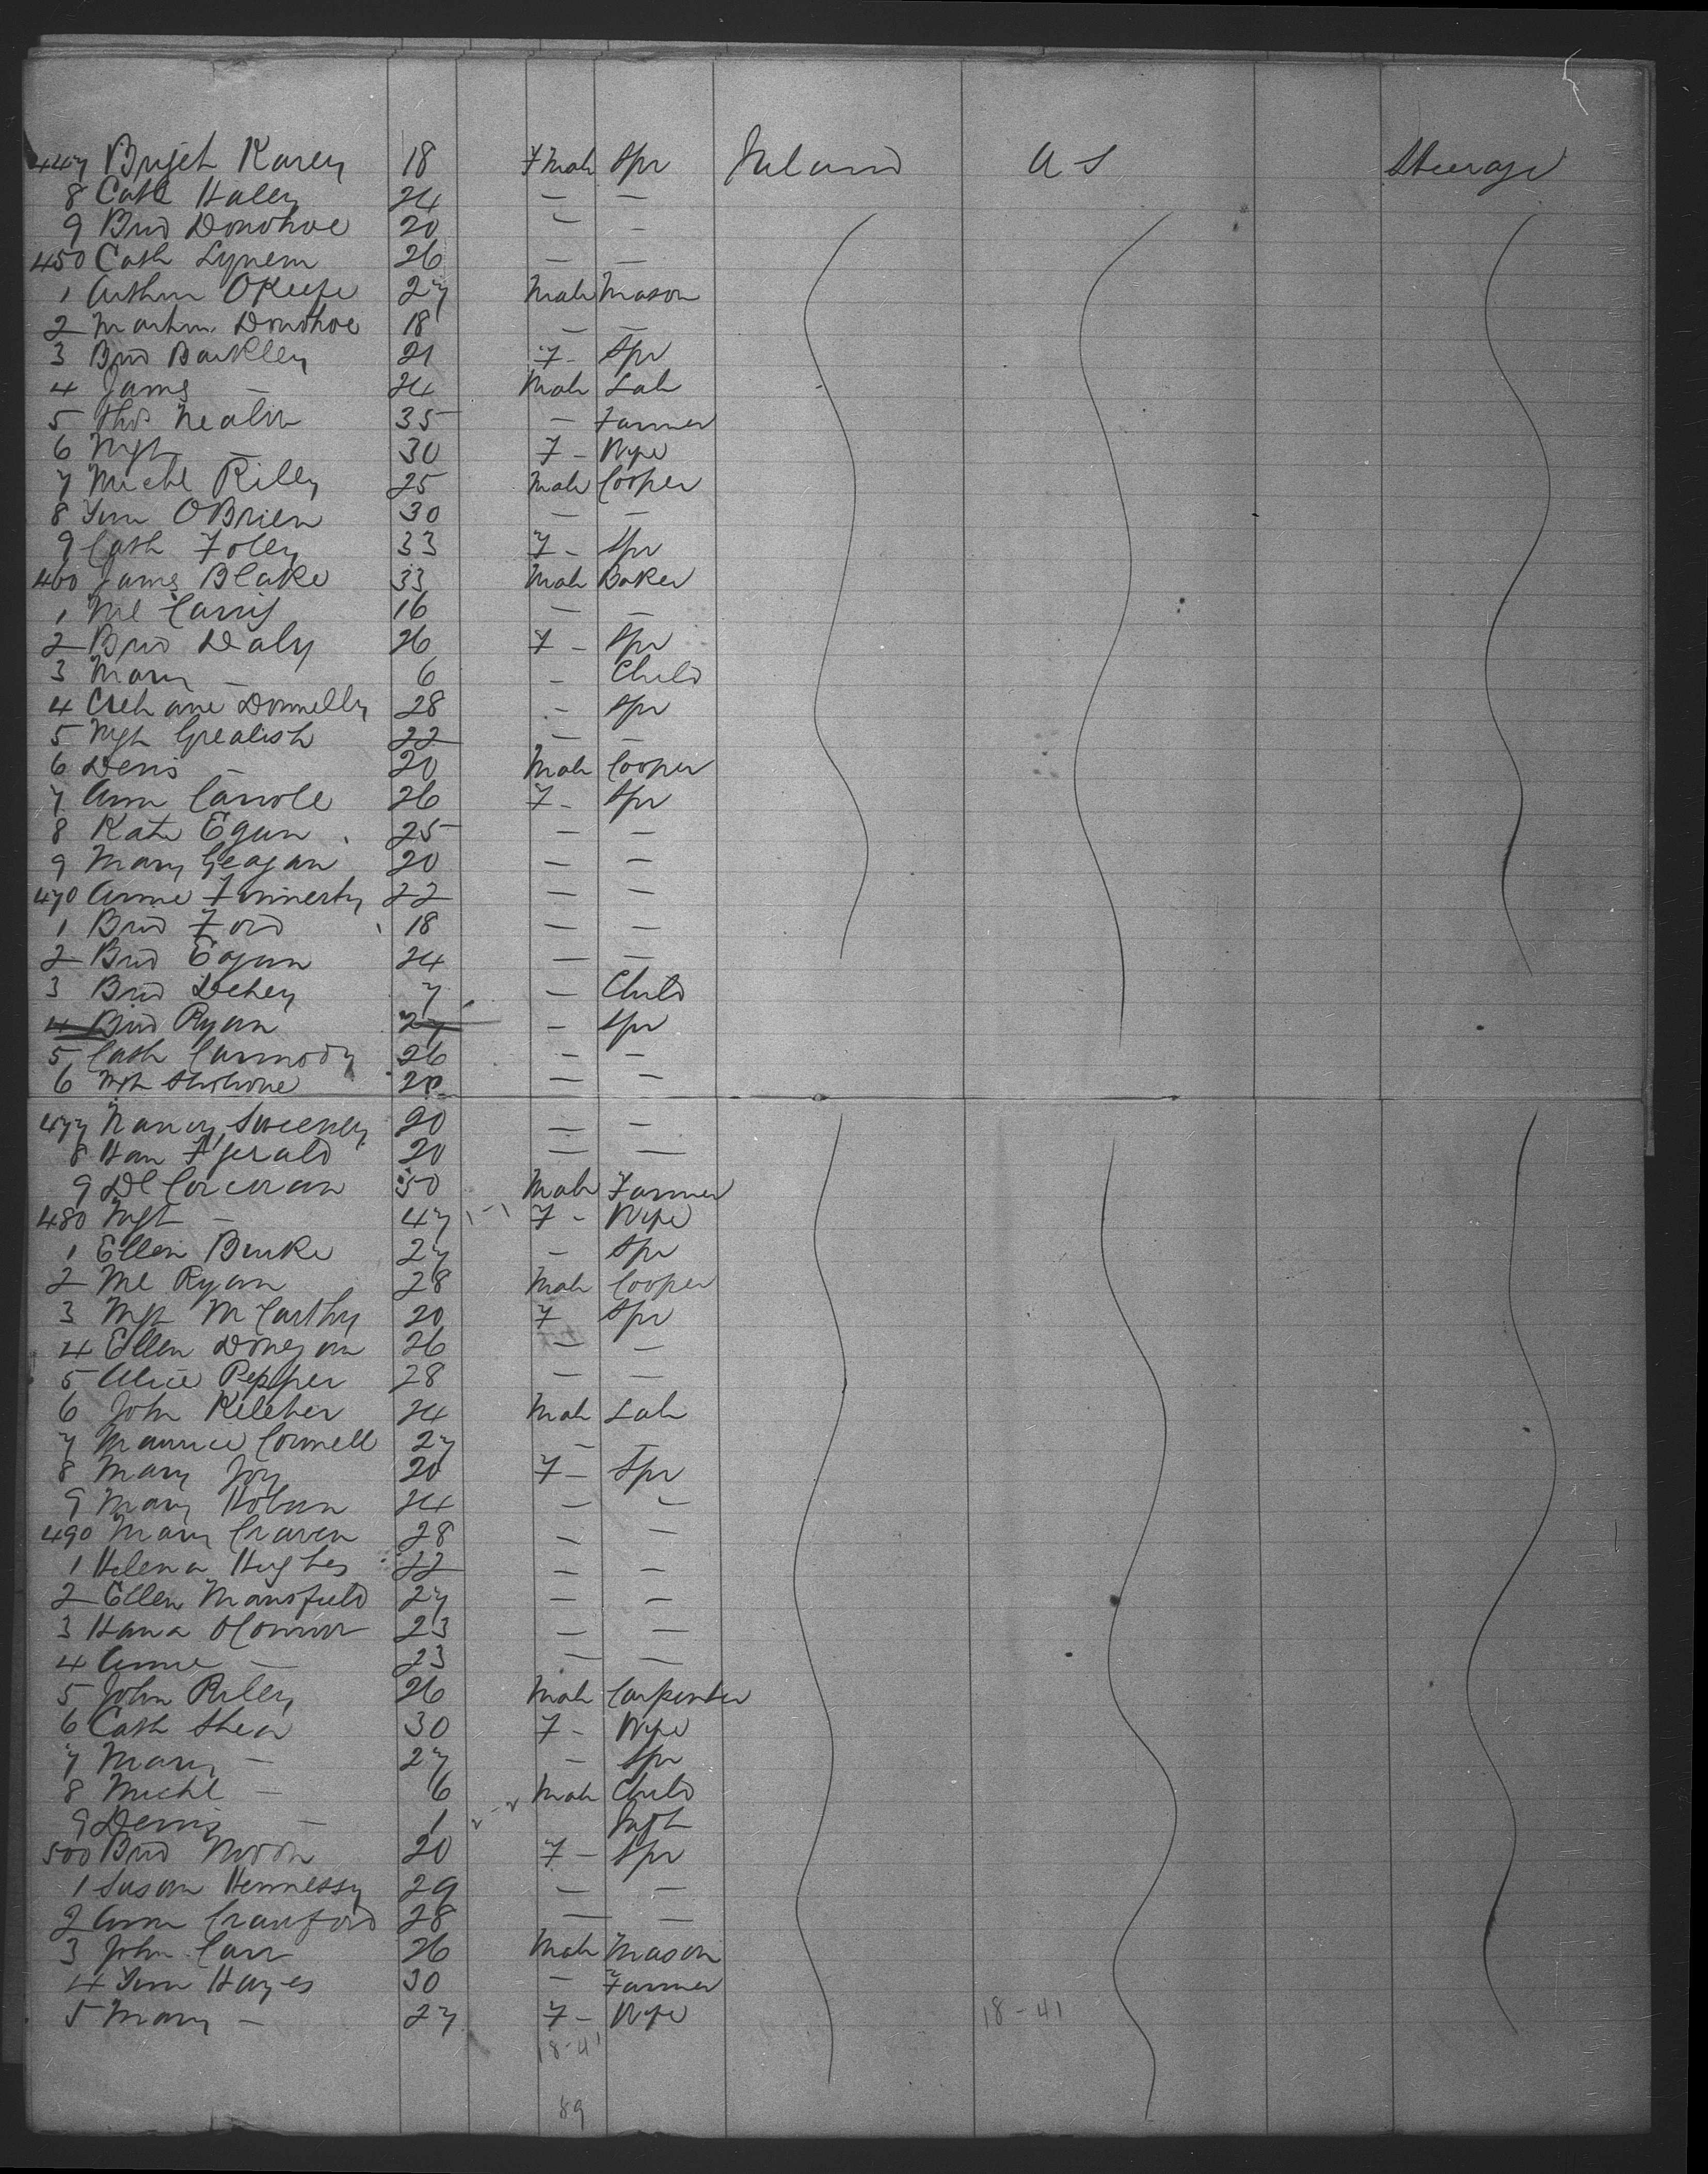 447 Brijet Karey 18 Fmale Spr Ireland U S Steerage
8 Cath Haley 24 — —
9 Brid Donohoe 20 — —
450 Cath Lynem 26 — —
1 Arthur OKeefe 27 Male Mason
2 Martin Donohoe 18 — —
3 Brid Barkley 21 F - Spr
4 James — 24 Male Lab
5 Thos Nealon 35 — Farmer
6 Mgt — 30 F - Wife
7 Michl Rilly 25 Male Cooper
8 Tim OBrien 30 — —
9 Cath Foley 33 F - Spr
460 James Blake 33 Male Baker
1 Ml 16 — —
2 Brid Daly 26 F - Spr
3 Mary — 6 - Child
4 Donnelly 28 - Spr
5 Mgt Grealish 22 — —
6 Denis — 20 Male Cooper
7 Ann Carrole 26 F - Spr
8 Kate Egan 25 — —
9 Mary Geagan 20 — —
470 Annie Finnerty 22 — —
1 Brid Ford 18 — —
2 Brid Egan 24 — —
3 Brid Dehey 7 — Child
4 Brid Ryan 27 - Spr
5 Cath Carmody 26 — —
6 Mgt 20 — —
477 Nancy Sweeney 20 — —
8 Han Fgerald 20 — —
9 Dl Corcoran 50 Male Farmer
480 Mgt — 47 F - Wife
1 Ellen Burke 27 - Spr
2 Ml Ryan 28 Male Cooper
3 Mgt McCarthy 20 F Spr
4 Ellen Donegan 26 — —
5 Alice Pepper 28 — —
6 John Keleher 24 Male Lab
7 Maurice Connell 27 — —
8 Mary Joy 20 F - Spr
9 Mary Hoban 24 — —
490 Mary Craven 28 — —
1 Helena Hughes 22 — —
2 Ellen Mansfield 27 — —
3 Hana OConnor 23 — —
4 Annie — 23 — —
5 John Riley 26 Male Carpenter
6 Cath Shea 30 F - Wife
7 Mary — 27 - Spr
8 Michl — 6 Male Child
9 Denis — 1 Inft
500 Brid Moon 20 F - Spr
1 Susan Hennessy 29 — —
2 Ann Crawford 28 — —
3 John Carr 26 Male Mason
4 Tim Hayes 30 — Farmer
5 Mary — 27 F - Wife 18-41
18-41
89